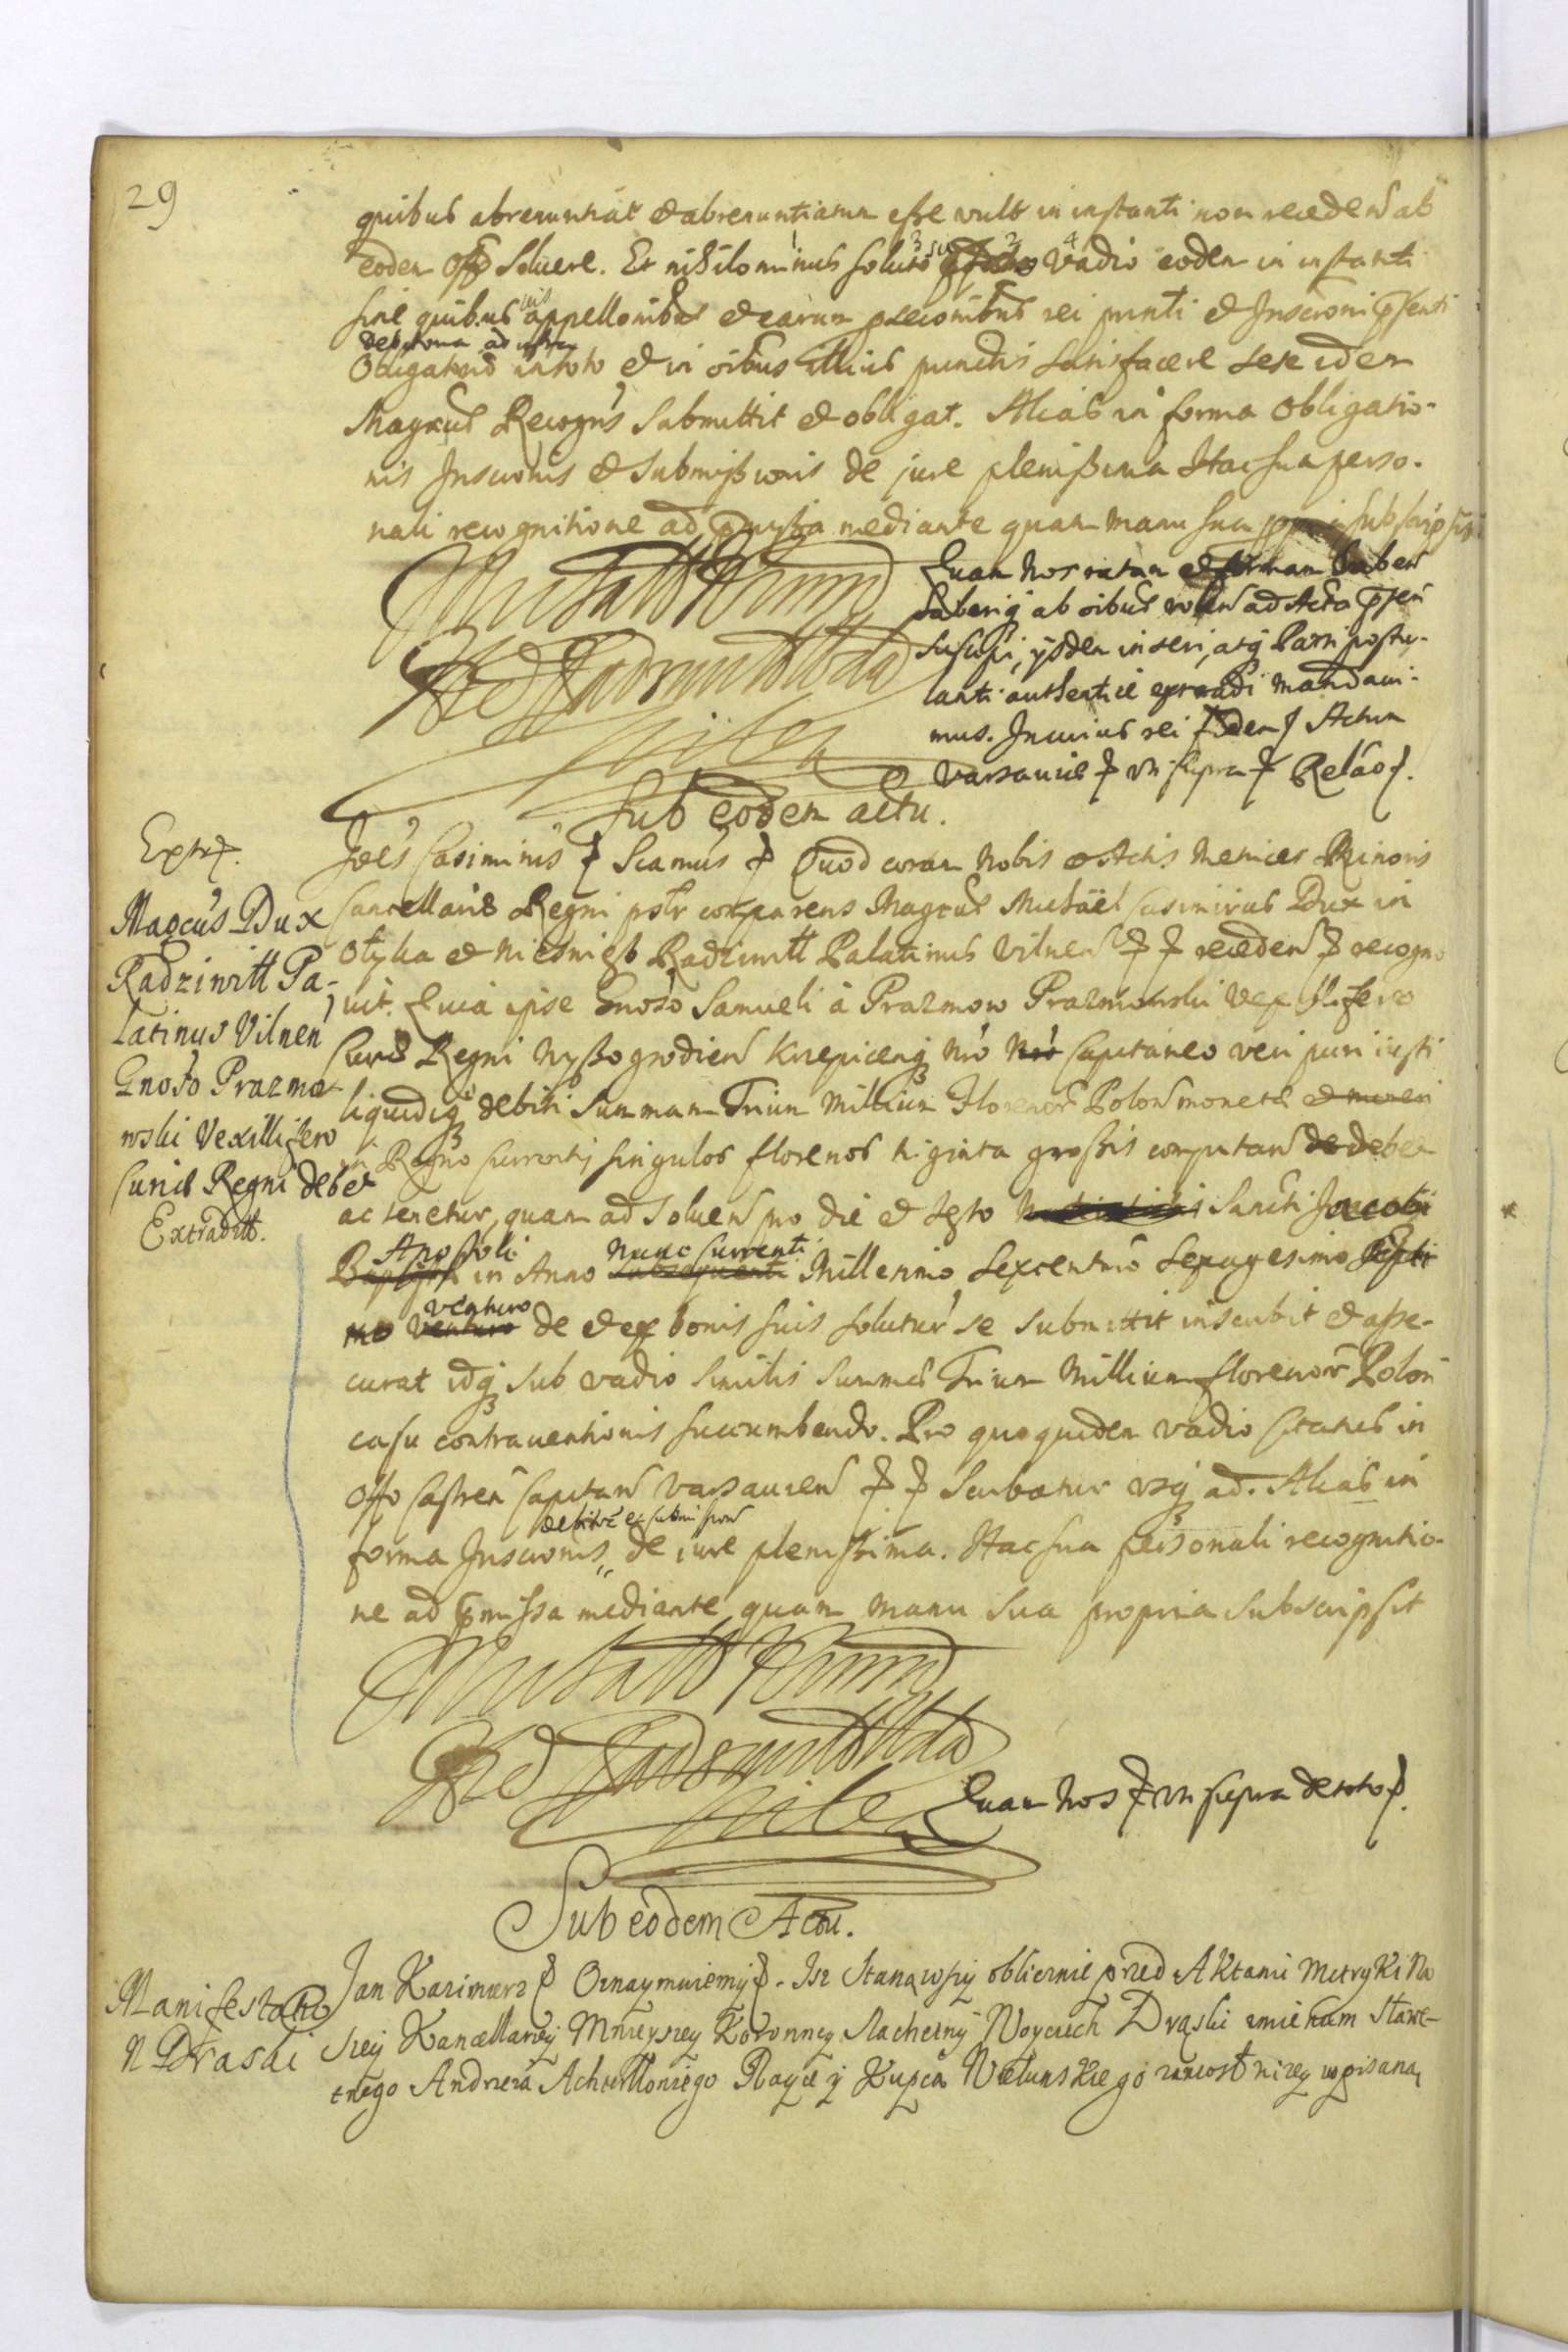 29
quibus abrenuntiat et abrenuntiatum esse vult in instanti non recedend ab
eodem Offo Soluere. Et nihilominus soluto vadio eodem in instanti
sine quibusuis appellonibus et earum psecionibus rei printi et Inscroni psenti
Obligatus in toto et in oibus illius punctis satisfacere sese idem
Magcus Recogns submittit et obligat. Alias in forma Obligatio-
nis Inscronis et submissionis de jure plenissima Hac sua perso-
nali recognitione ad pmissa mediante quam manu sua subscripsit
Quam Nos ratam et firmam haben
haberiq ab oibus volen ad Acta psen
suscipi, ysdem inseri, atq Parti postu-
lanti authentice extradi mandaui-
mus. In cuius rei fidem Actum
Varsauie ut supra Relao.
Sub eodem actu.
Extr.
Magcus Dux
Radziwill Pa-
latinus Vilnen
Gnoso Prazmo-
wski Vexillifero
Curiæ Regni debet
Extradit.
Joes Casimirus Scamus Quod coram Nobis et Actis Metrices Minoris
Cancellariæ Regni psltr comparens Magcus Michael Casimirus Dux in
Olyka et Nieswiesz Radziwill Palatinus Vilnen receden recogno-
uit. Quia ipse Gnoso Samueli à Prazmow Prazmowski Vexillifero
Curiæ Regni Wyszogrodien Krzepicenq Nro Nro Capitaneo veri puri iusti
liquidiq debiti Summam Trium Millium Florenor Polon monetæ et numeri
in Regno currentis singulos florenos triginta grossis computan de debet
ac tenetur, quam ad Soluen pro die et festo Sancti Jacobi
Apostoli nunc currenti
Baptistæ in Anno subsequenti Millesimo Sexcentmo Sexagesimo Septi
venturo
mo venturo de et ex bonis suis soluturu se submittit inscribit et asse-
curat idq sub vadio similis summæ Trium Millium florenor Polon
casu contrauentionis succumbendo. Pro quo quidem vadio citatus in
Offo Castren Capitan Varsauien Scribatur vsq ad. Alias in
debitæ et submission
forma Inscronis de iure plenissima. Hac sua personali recognitio-
ne ad pmissa mediante quam manu sua propria subscripsit
Quam Nos ut supra de toto.
Sub eodem Actu.
Manifestatio
N Drąski
Jan Kazimierz Oznaymuiemy. Isz Stanąwszy obliecznie przed Aktami Metryki Na
szey Kancellariey Mnieyszey Koronney Slachetny Woyciech Drąski imieniem Sławe-
tnego Andrzeia Achtelloniego Rayce y Kupca Wielunskiego zaniosł nizey wpisaną